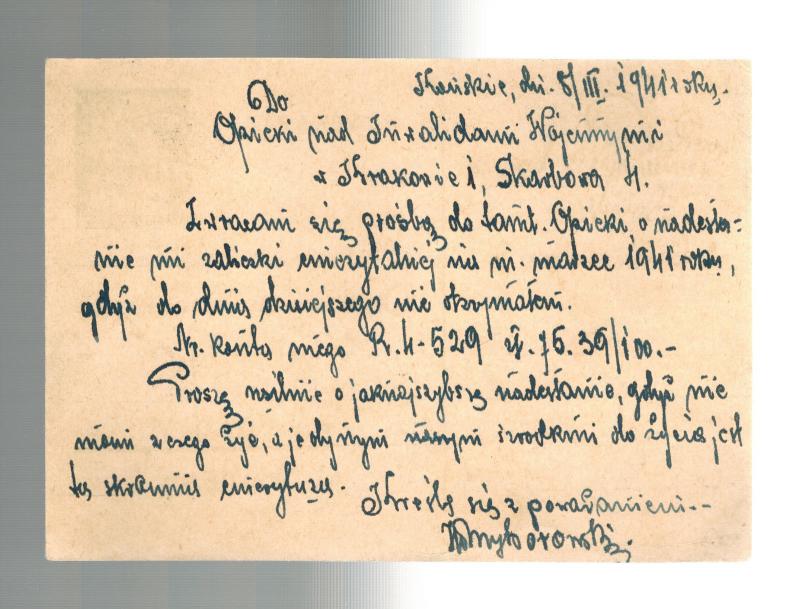 Końskie, dn. 8/III. 1941 roku.
Do
Opieki nad Inwalidami Wojennymi
w Krakowie 1, Skarbowa 4.
Zwracam się prośbą do tamt. Opieki o nadesła-
nie mi zaliczki emerytalnej na m. marzec 1941 roku,
gdyż do dnia dzisiejszego nie otrzymałem.
Nr. konta mego R.4-529 zł. 75.39/100.-
Proszę usilnie o jaknajszybsze nadesłanie, gdyż nie
mam z czego żyć, a jedynym naszym środkiem do życia jest
ta skromna emerytura.
Kreślę się z poważaniem.-